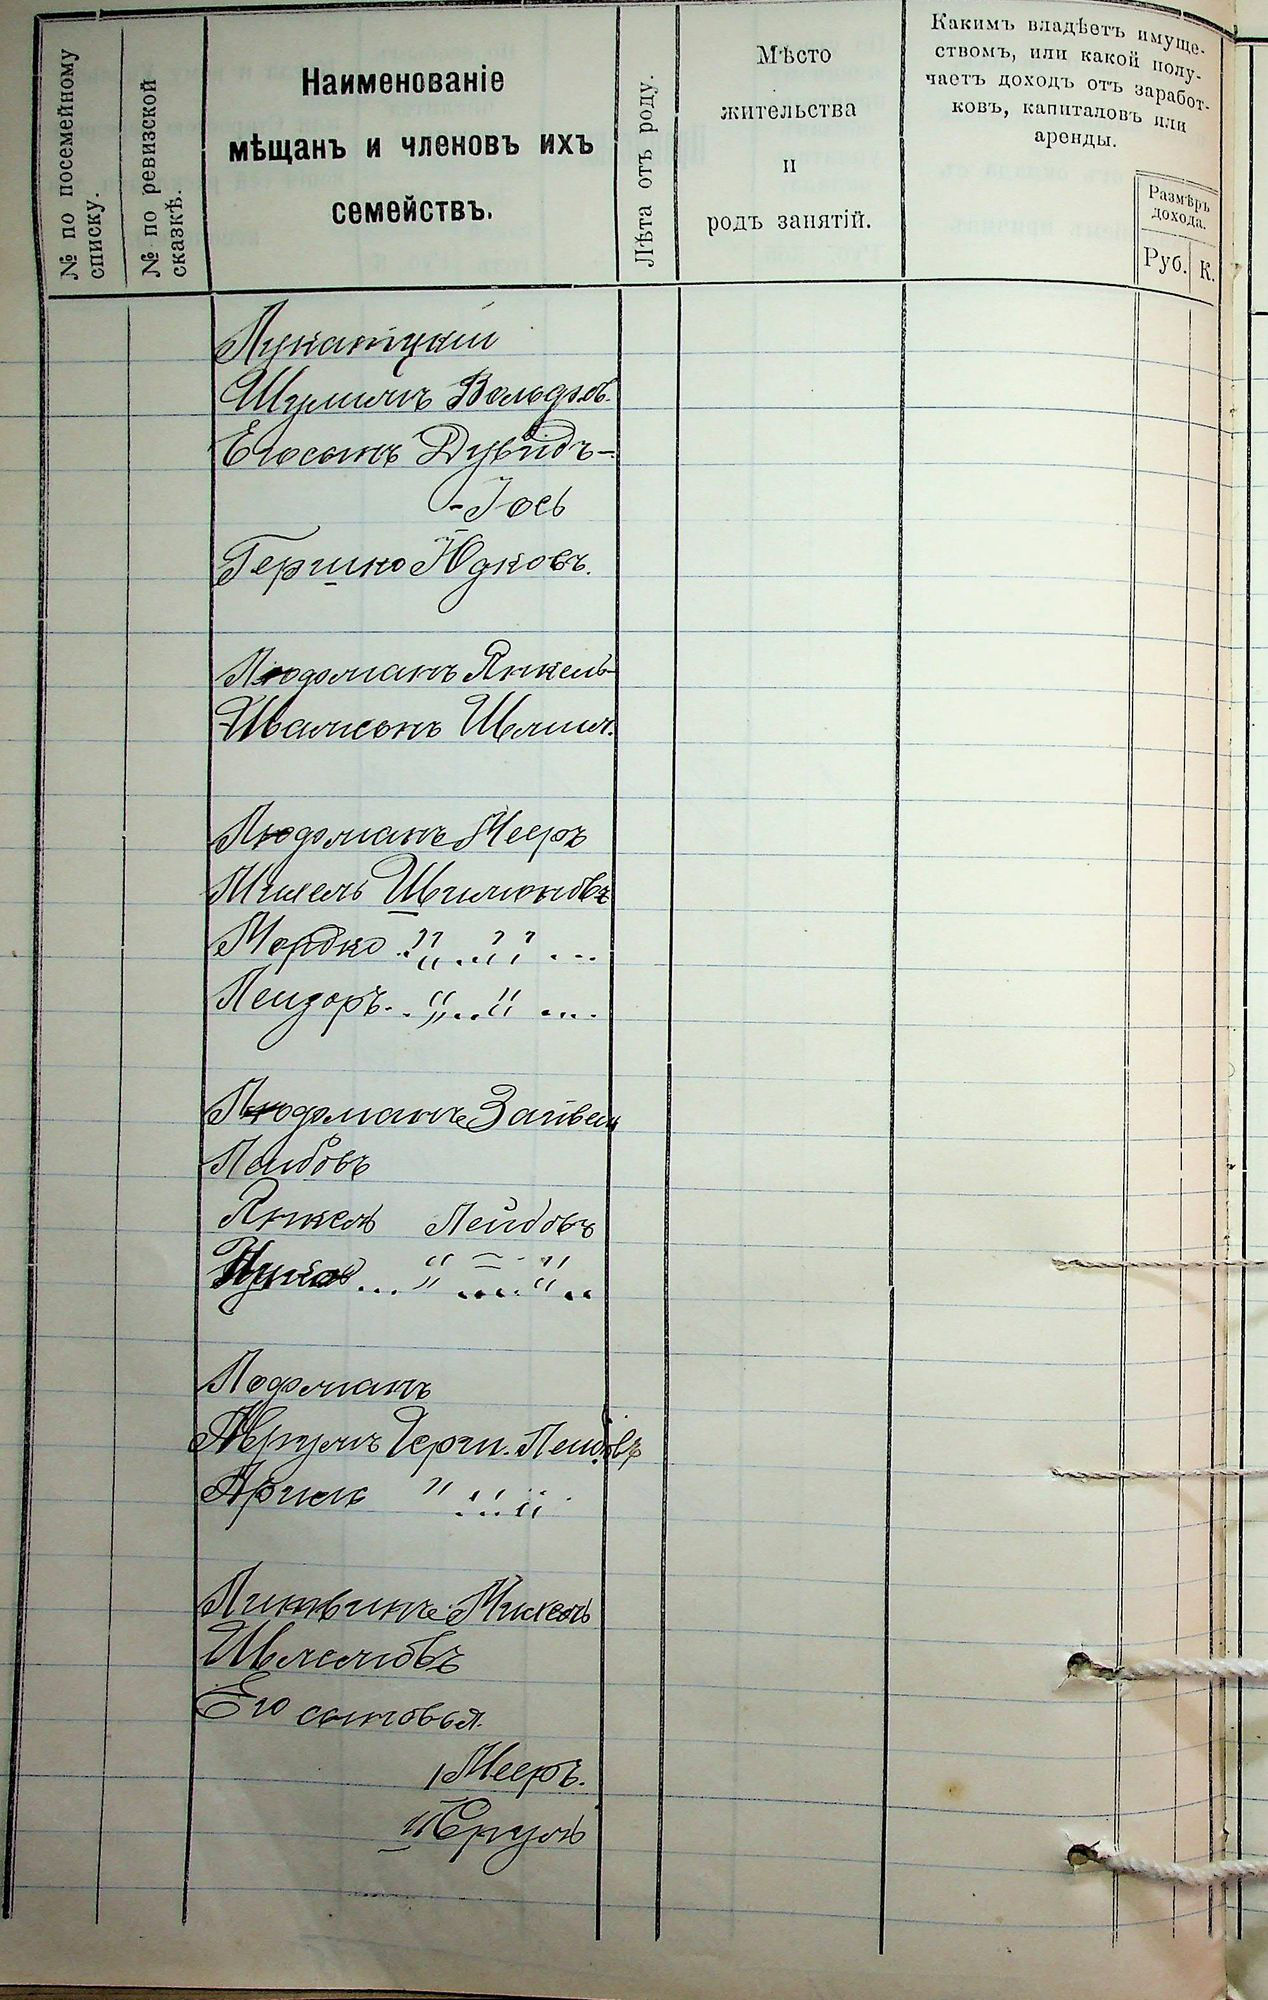 № по посемейному
списку.
№ по ревизской
сказкѣ.
Наименованіе
мѣщанъ и членовъ ихъ
семействъ.
Лѣта отъ роду.
Мѣсто
жительства
и
родъ занятій.
Какимъ владѣетъ имуще-
ствомъ, или какой полу-
чаетъ доходъ отъ заработ-
ковъ, капиталовъ или
аренды.
Размѣръ
дохода.
Руб.
К.
Вольфов.
Его сынъ Дувидъ-
-Іось
Гершко Юдковъ.
Людманъ Янкель-
Людманъ Мееръ
Михель Шимоновъ
Мордко
Лейзоръ
Людманъ Зайвел
Лейбовъ
Янкель Лейбовъ
Аврумъ Герш. Лейбовъ
Литвинъ Михель
Шлемовъ
Его сыновья.
1 Мееръ.
Сруль